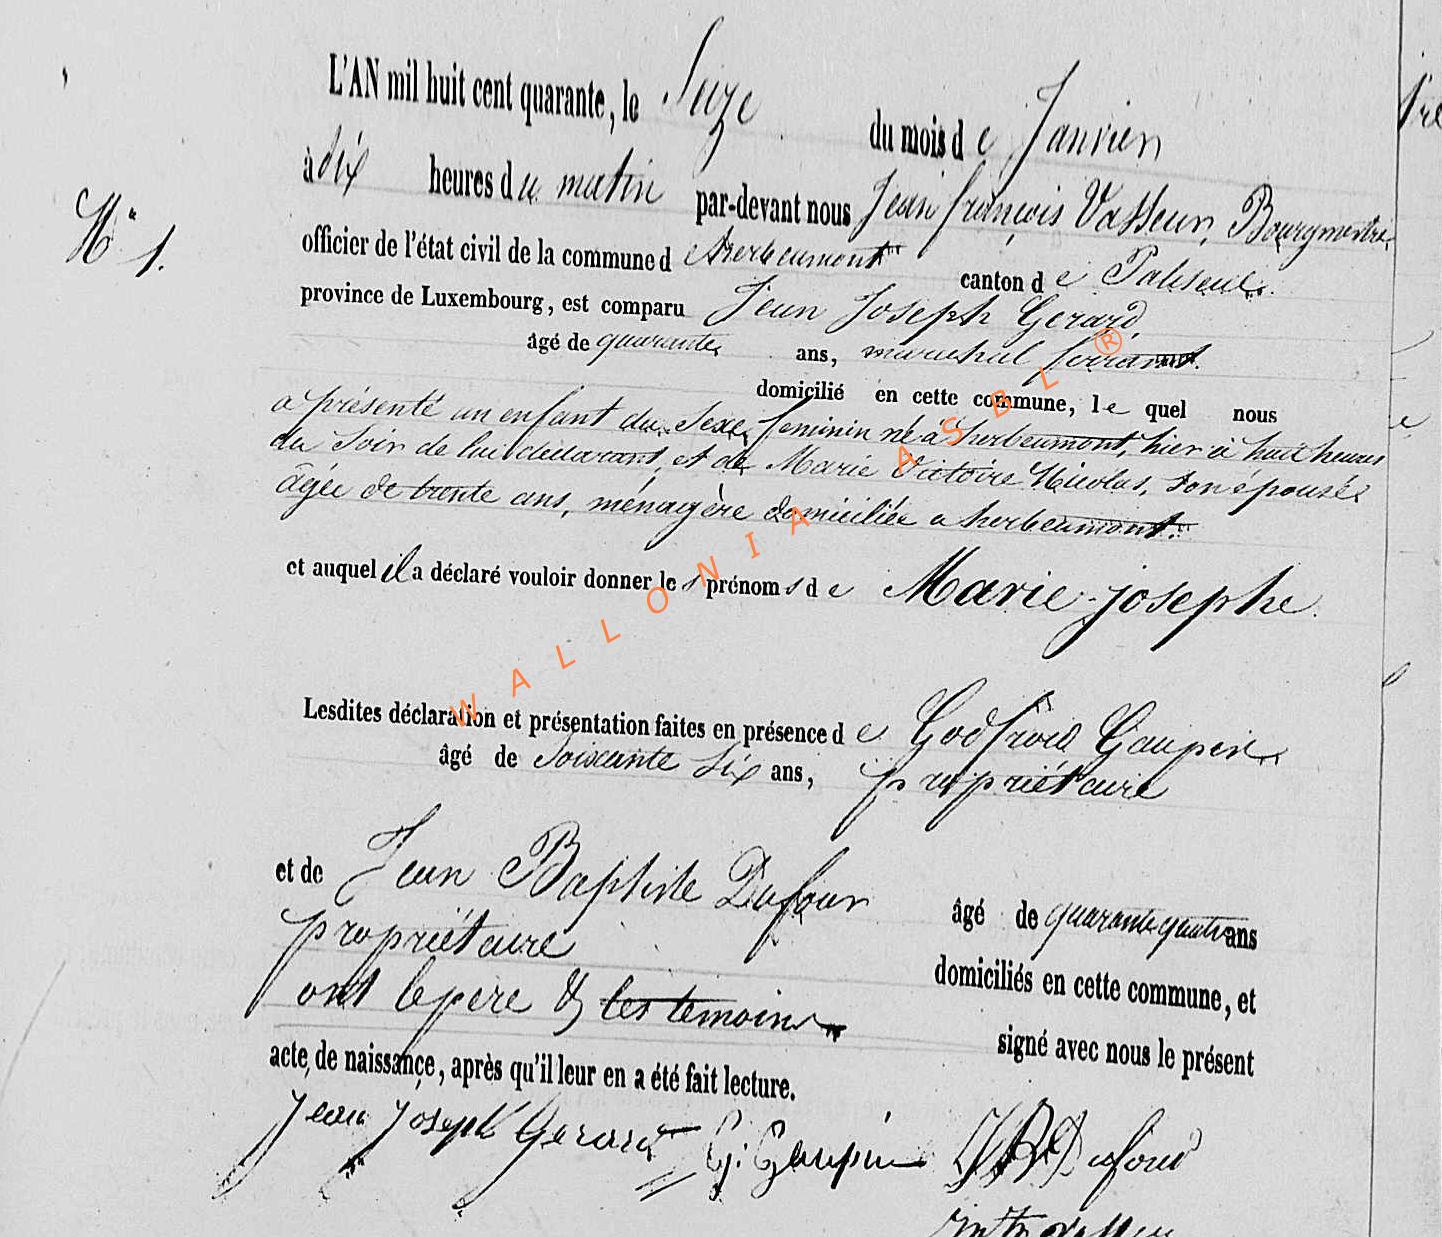 L'AN mil huit cent quarante, le Seize du mois de Janvier
à dix heures du matin par-devant nous Jean françois Vasseur, Bourgmestre
officier de l'état civil de la commune d'herbeumont canton de Paliseul
province de Luxembourg, est comparu Jean Joseph Gerard,
N° 1.
âgé de quarante ans, marechal ferrant.
domicilié en cette commune, le quel nous
a présenté un enfant du Sexe feminin né à herbeumont, hier à huit heures
du Soir de lui déclarant, et de Marie Victoire Nicolas, Son épouse
âgée de trente ans, ménagère domiciliée a herbeumont.
et auquel il a déclaré vouloir donner les prénoms de Marie-josephe
Lesdites déclaration et présentation faites en présence de Godfroid Gaupin
âgé de Soixante Six ans, propriétaire
et de Jean Baptiste Dufour âgé de quarante quatre ans
propriétaire domiciliés en cette commune, et
ont le père & les temoins signé avec nous le présent
acte de naissance, après qu'il leur en a été fait lecture.
Jean Joseph Gerard G. Gaupin JB Dufour
WALLONIA ASBL ®